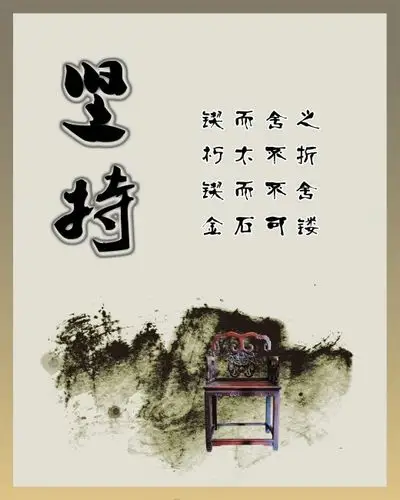 坚持
锲而舍之
朽太不折
锲而不舍
金石可镂